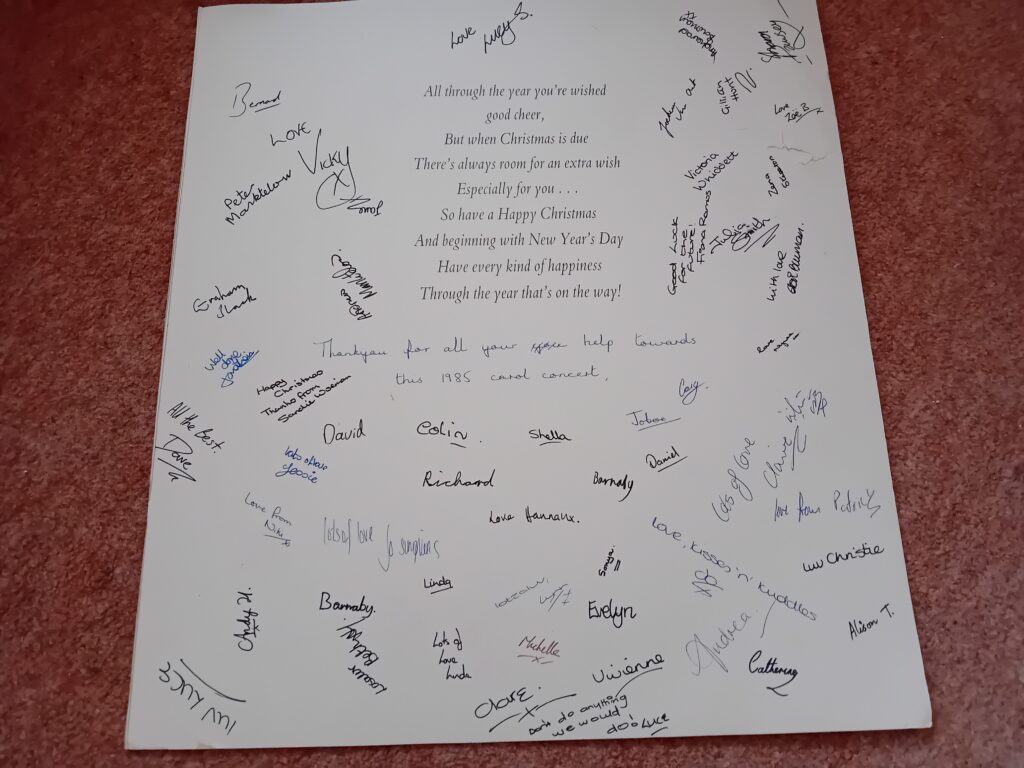 Love
Lucy S.
Bernard
LOVE
VICKY
X
Peter
Gillian
Love
Zoë B
x
Victoria
Whiddett
All through the year you're wished
good cheer,
But when Christmas is due
There's always room for an extra wish
Especially for you . . .
So have a Happy Christmas
And beginning with New Year's Day
Have every kind of happiness
Through the year that's on the way!
Good Luck
for the
future!
Fiona Ramos
Julia
Smith
With love
Graham
Andrew
Thankyou for all your help towards
this 1985 carol concert.
Well
done
Happy
Christmas
Thanks from
Sandie
All the Best.
Dave
David
Colin.
Sheila
Craig.
Daniel
lots of love
Richard
Barnaby
Lots of love
Claire
Love Hannah x.
love from Patrick
Love from
Niki x
lots of love
Love, Kisses 'n' Kuddles
Luv Christie
Linda
Sonya
Evelyn
Andy H.
Barnaby.
Andrea
Alison T.
Lots of
Love
Linda
Michelle
x
Vivienne
Catherine
Luv Luke S
Clare.
x
Don't do anything
we would
do! Luke